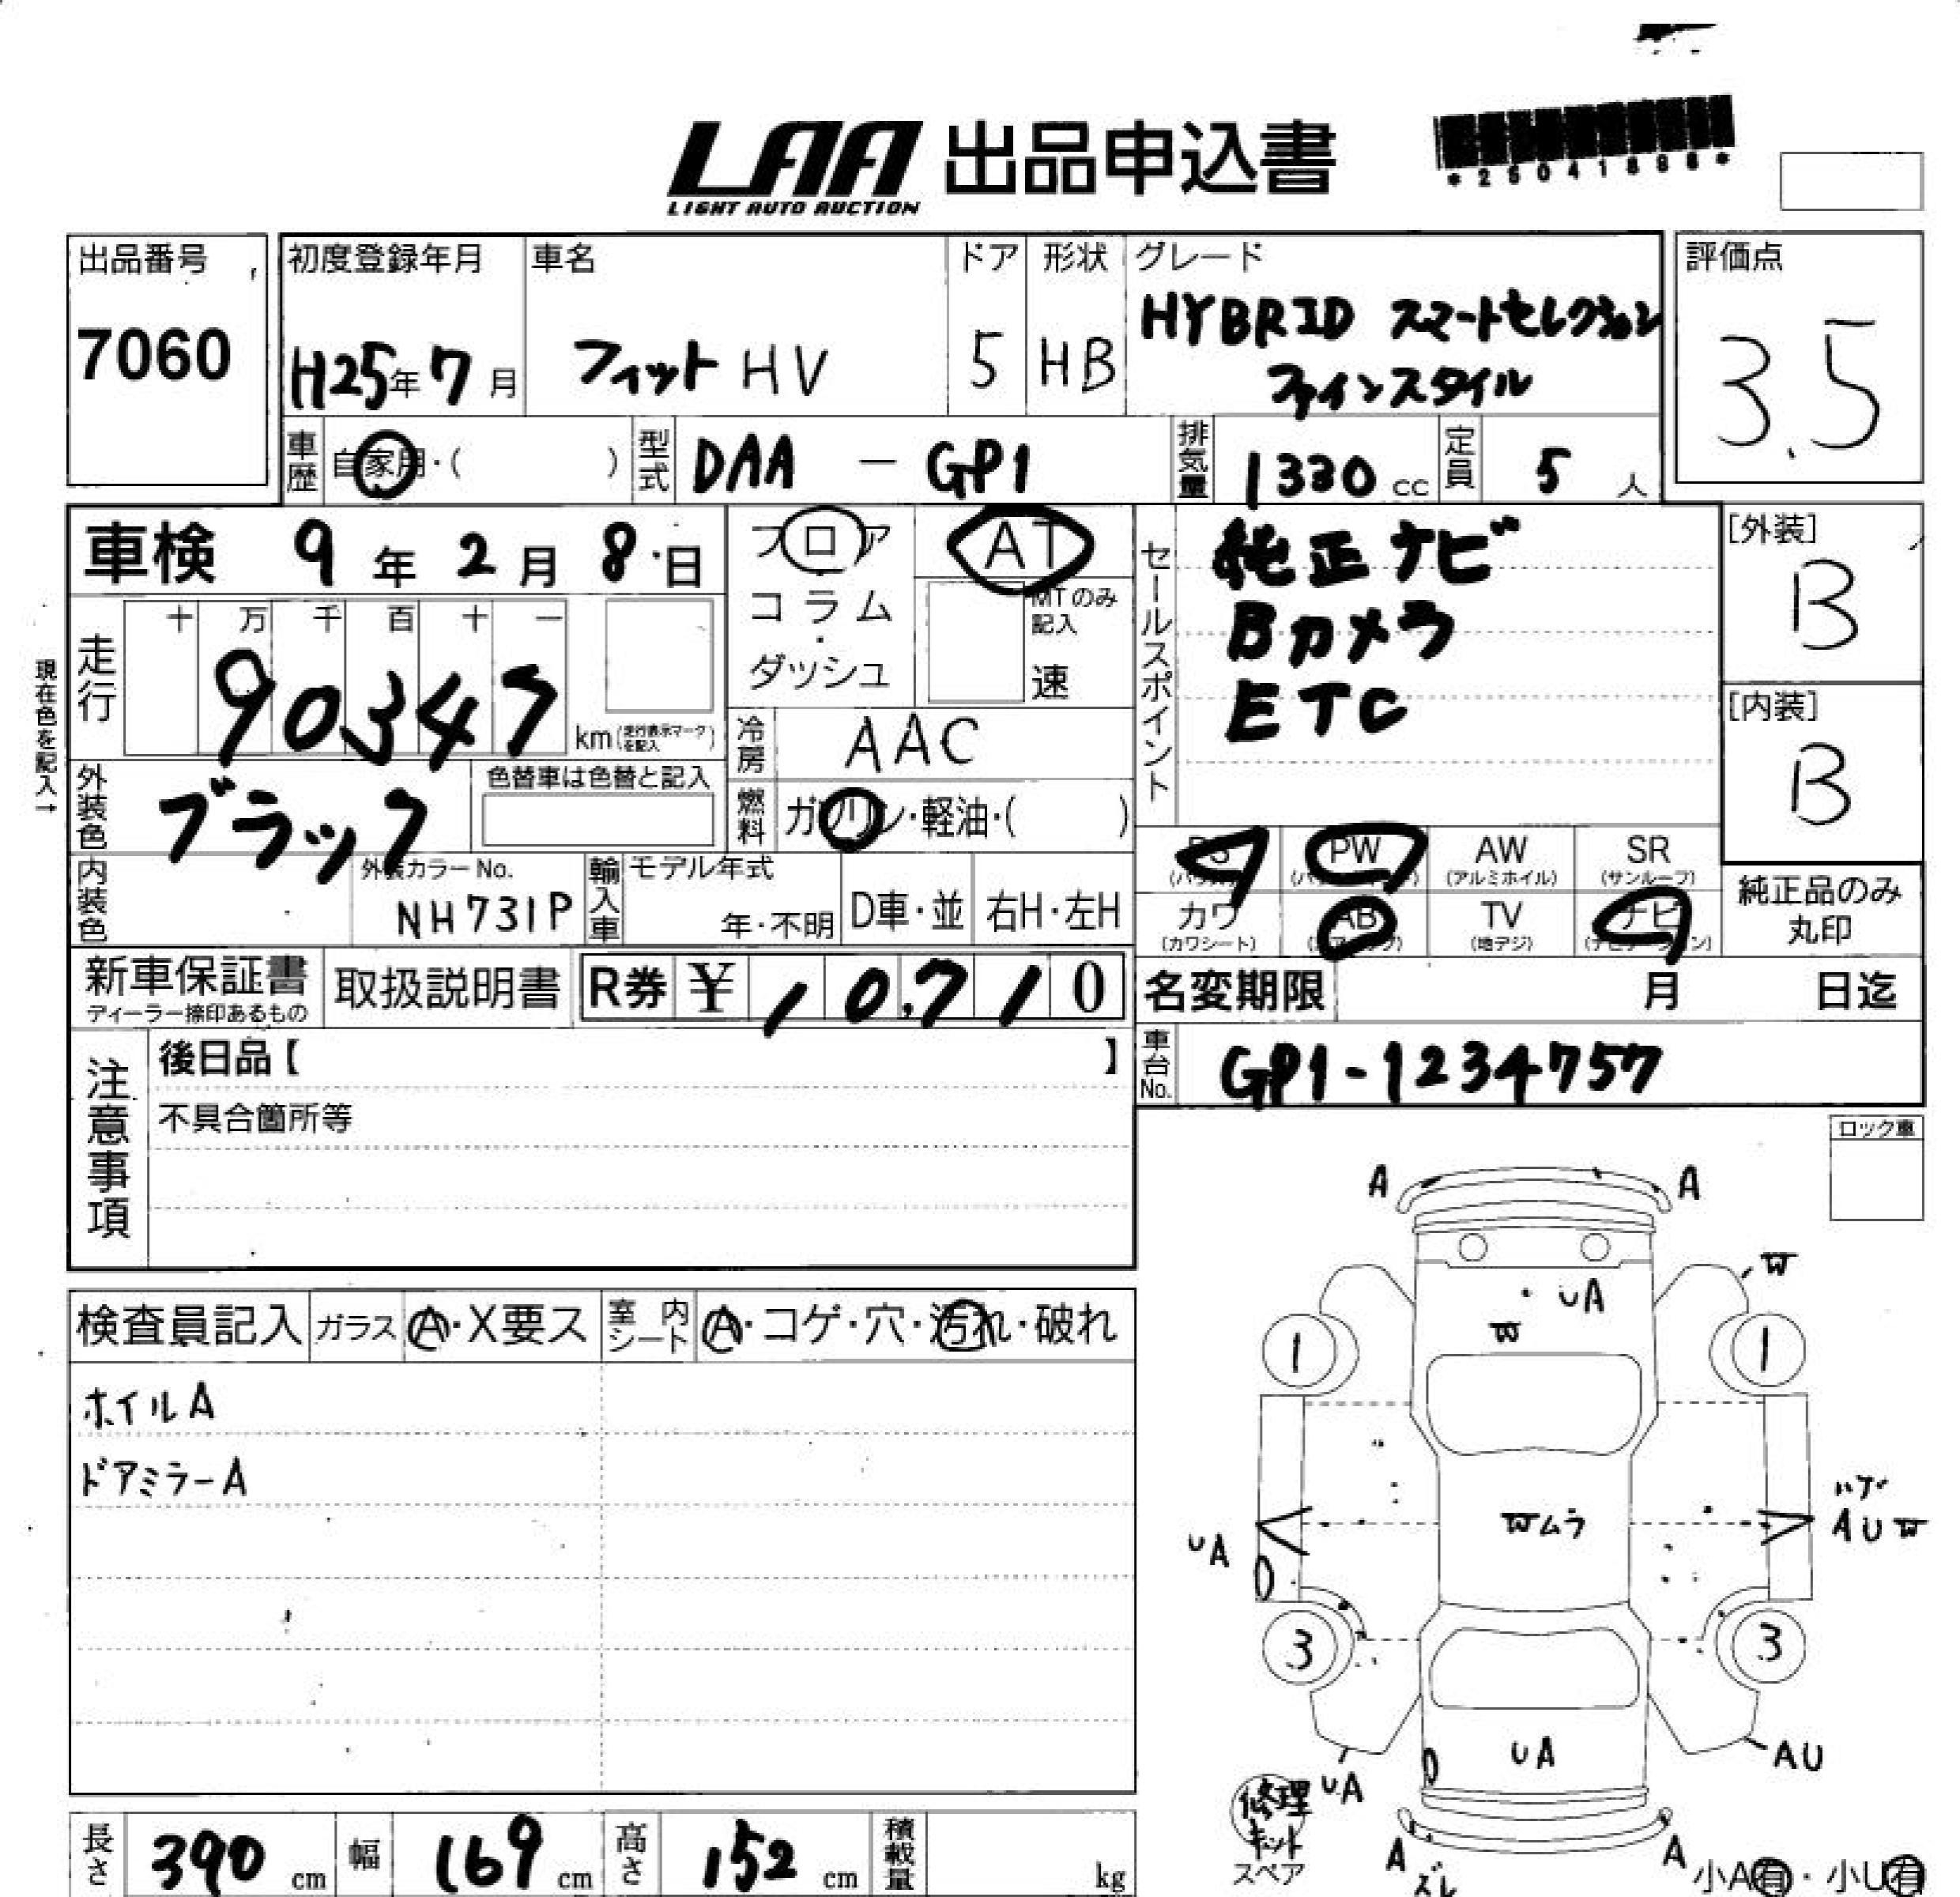 LAA 出品申込書
LIGHT AUTO AUCTION
*25041886*
出品番号
7060
初度登録年月
H25年7月
車名
フィット HV
ドア
5
形状
HB
グレード
HYBRID スマートセレクション
ファインスタイル
評価点
3.5
車歴
自家用・( )
型式
DAA - GP1
排気量
1330 cc
定員
5 人
車検 9年2月8日
フロア
・
コラム
・
ダッシュ
AT
MTのみ
記入
速
セールスポイント
純正ナビ
Bカメラ
ETC
[外装]
B
[内装]
B
現在色を記入→
走行
十 万 千 百 十 一
90347
km(走行表示マークを記入)
冷房
AAC
外装色
ブラック
色替車は色替と記入
燃料
ガソリン・軽油・( )
内装色
外装カラーNo.
NH731P
輸入車
モデル年式
年・不明
D車・並
右H・左H
PS
PW
AW
(アルミホイル)
SR
(サンルーフ)
カワ
(カワシート)
AB
TV
(地デジ)
ナビ
純正品のみ
丸印
新車保証書
ディーラー捺印あるもの
取扱説明書
R券 ¥10,710
名変期限 月 日迄
車台No.
GP1-1234757
注意事項
後日品【 】
不具合箇所等
ロック車
検査員記入
ガラス
A・X要ス
室内シート
A・コゲ・穴・汚れ・破れ
ホイルA
ドアミラーA
A
A
W
UA
W
1
1
Wムラ
UA
AUW
3
3
UA
UA
AU
修理
キット
スペア
A
ズレ
A
小A有・小U有
長さ
390 cm
幅
169 cm
高さ
152 cm
積載量
kg